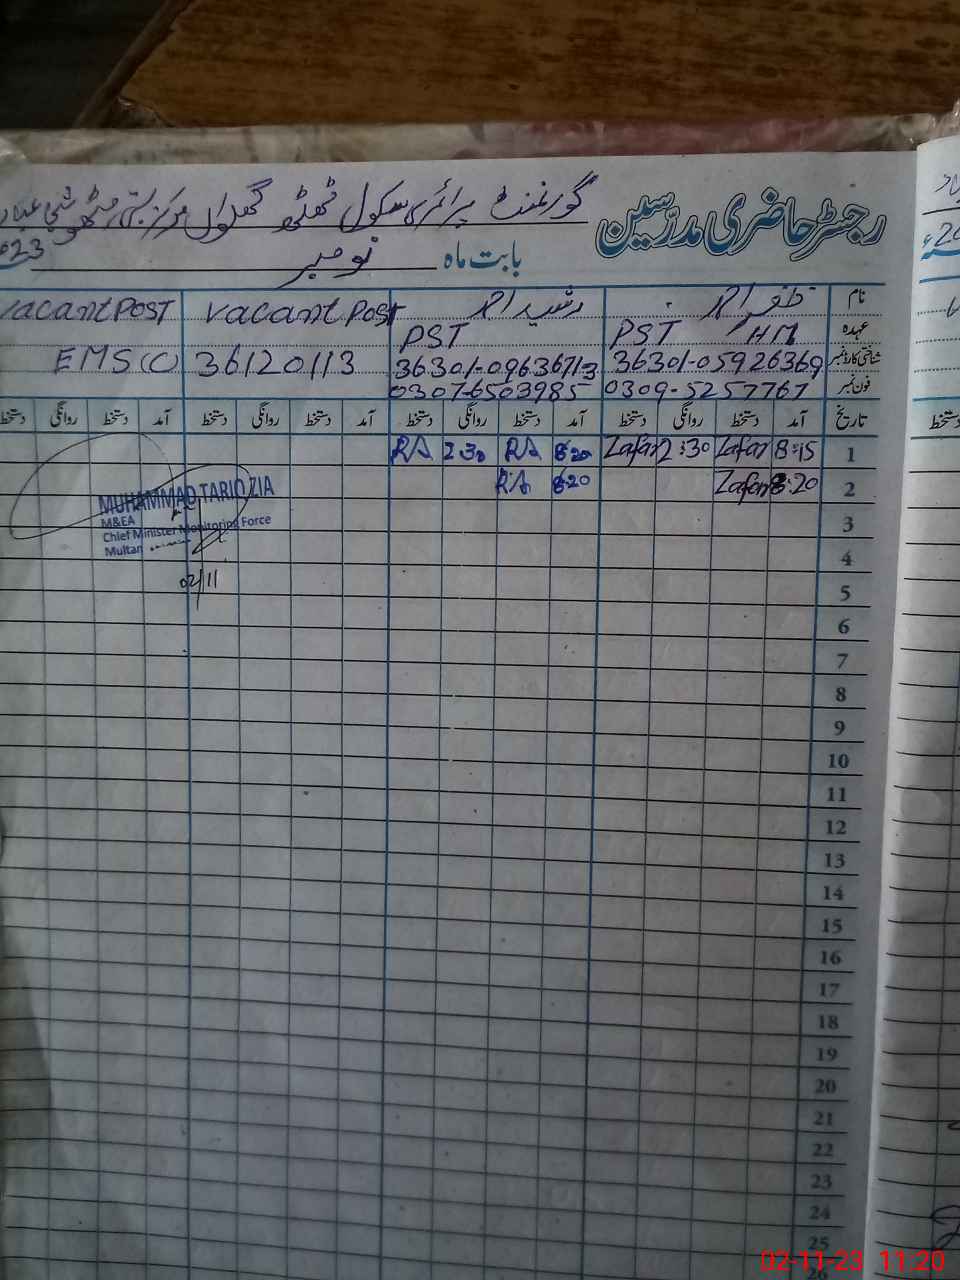 رجسٹر حاضری مدرسین
گورنمنٹ پرائمری سکول ٹھٹھہ گھلواں مرکز بستی مٹھو شجاع
بابت ماہ نومبر 23
نام ظفر احمد رشید احمد vacant Post vacant Post
عہدہ PST HM PST
شناختی کارڈ نمبر 36301-05926369 36301-09636711-3 36120113 EMS(C)
فون نمبر 0309-5257767 0307-6503985
تاریخ آمد دستخط روانگی دستخط آمد دستخط روانگی دستخط آمد دستخط روانگی دستخط آمد دستخط روانگی دستخط
1 8:15 Zafar 2:30 Zafar 8:20 RA 2:30 RA
2 8:20 Zafar 8:20 RA
MUHAMMAD TARIQ ZIA
M&EA
Chief Minister Monitoring Force
Multan
02/11
3
4
5
6
7
8
9
10
11
12
13
14
15
16
17
18
19
20
21
22
23
24
25
26
02-11-23 11:20